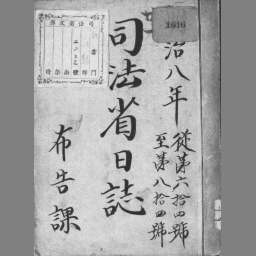 1616
治八年
從第六拾四號
至第八拾四號
司法省日誌
布告課